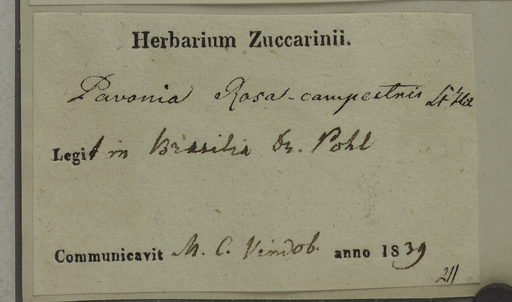 Herbarium Zuccarinii.
Pavonia Rosa-campestris St Hil
Legit in Brasilia Dr. Pohl
Communicavit M. C. Vindob. anno 1839
211